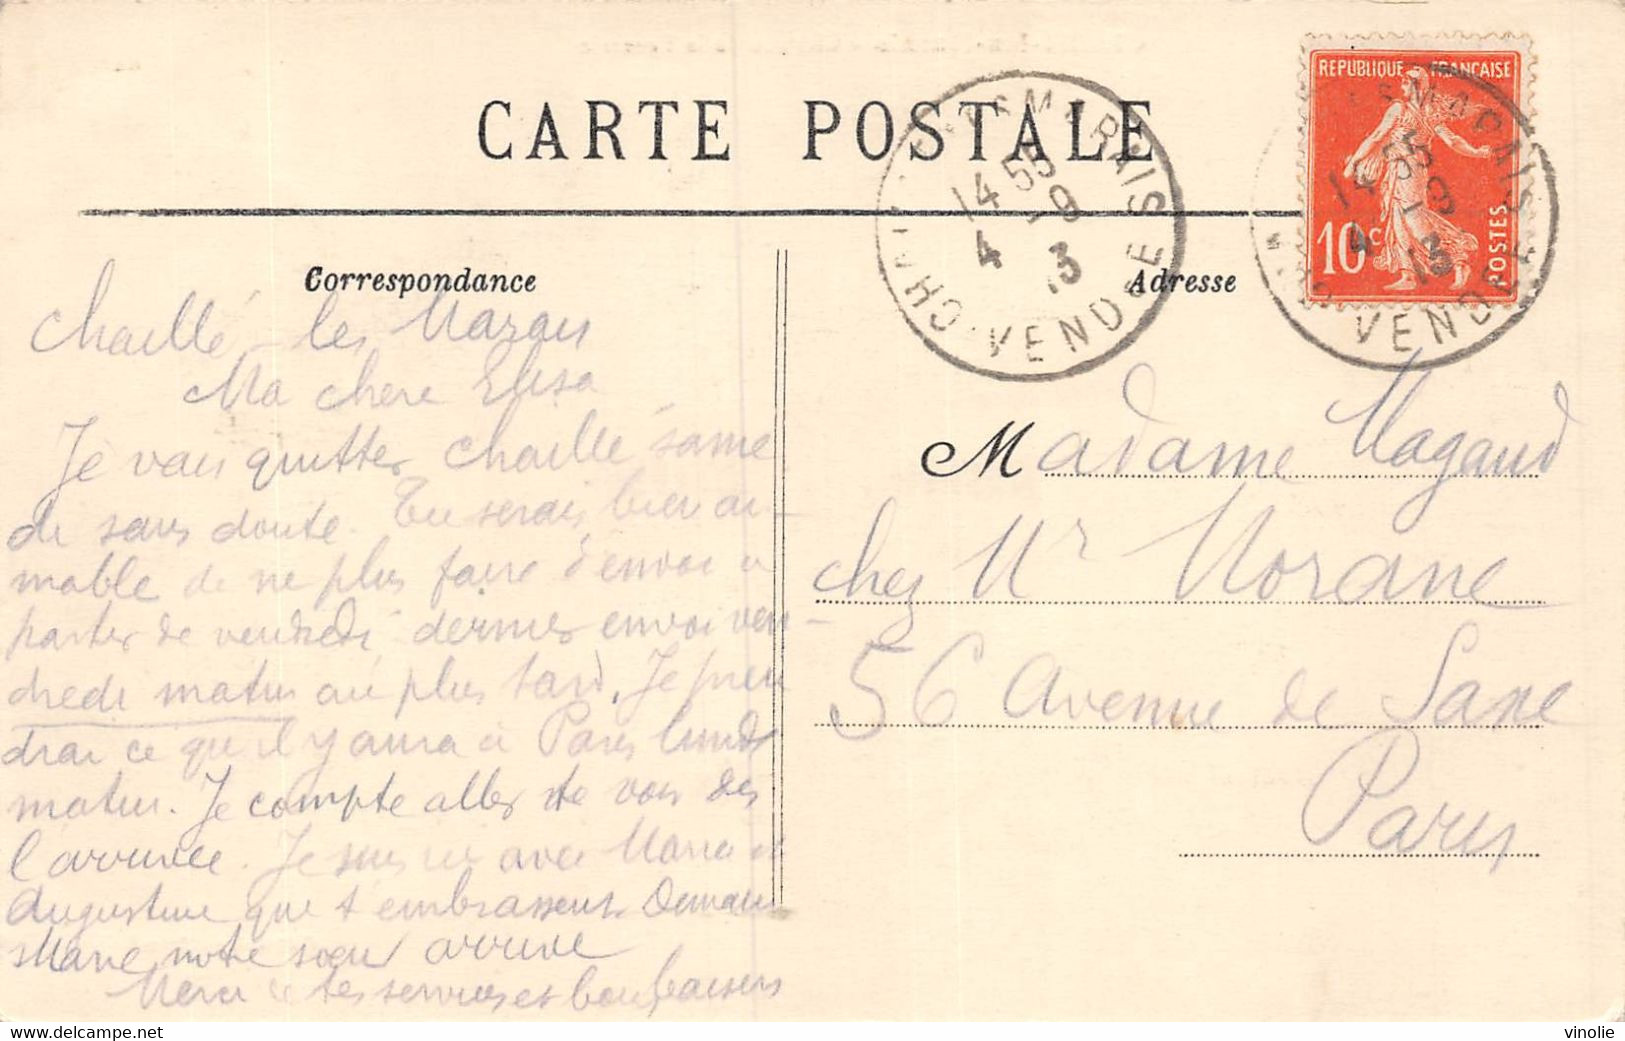 CARTE POSTALE
REPUBLIQUE FRANÇAISE
10c
POSTES
14 55
4 - 9
13
VENDEE
14 55
4 - 9
13
VENDEE
Correspondance
Adresse
Chaillé - les Marais
Ma chere Elisa
Je vais quitter Chaillé same
di sans doute. Tu serais bien ai-
mable de ne plus faire d'envoi à
partir de vendredi dernier envoi ven-
dredi matin au plus tard. Je pren
drai ce qu'il y aura à Paris lundi
matin. Je compte aller te voir dès
l'arrivée. Je suis ici avec Maria et
Augustine qui t'embrassent. Demain
Marie notre soeur arrive
Merci de tes services et bons baisers
Madame Magaud
chez Mr Morane
56 Avenue de Saxe
Paris
delcampe.net
vinolie